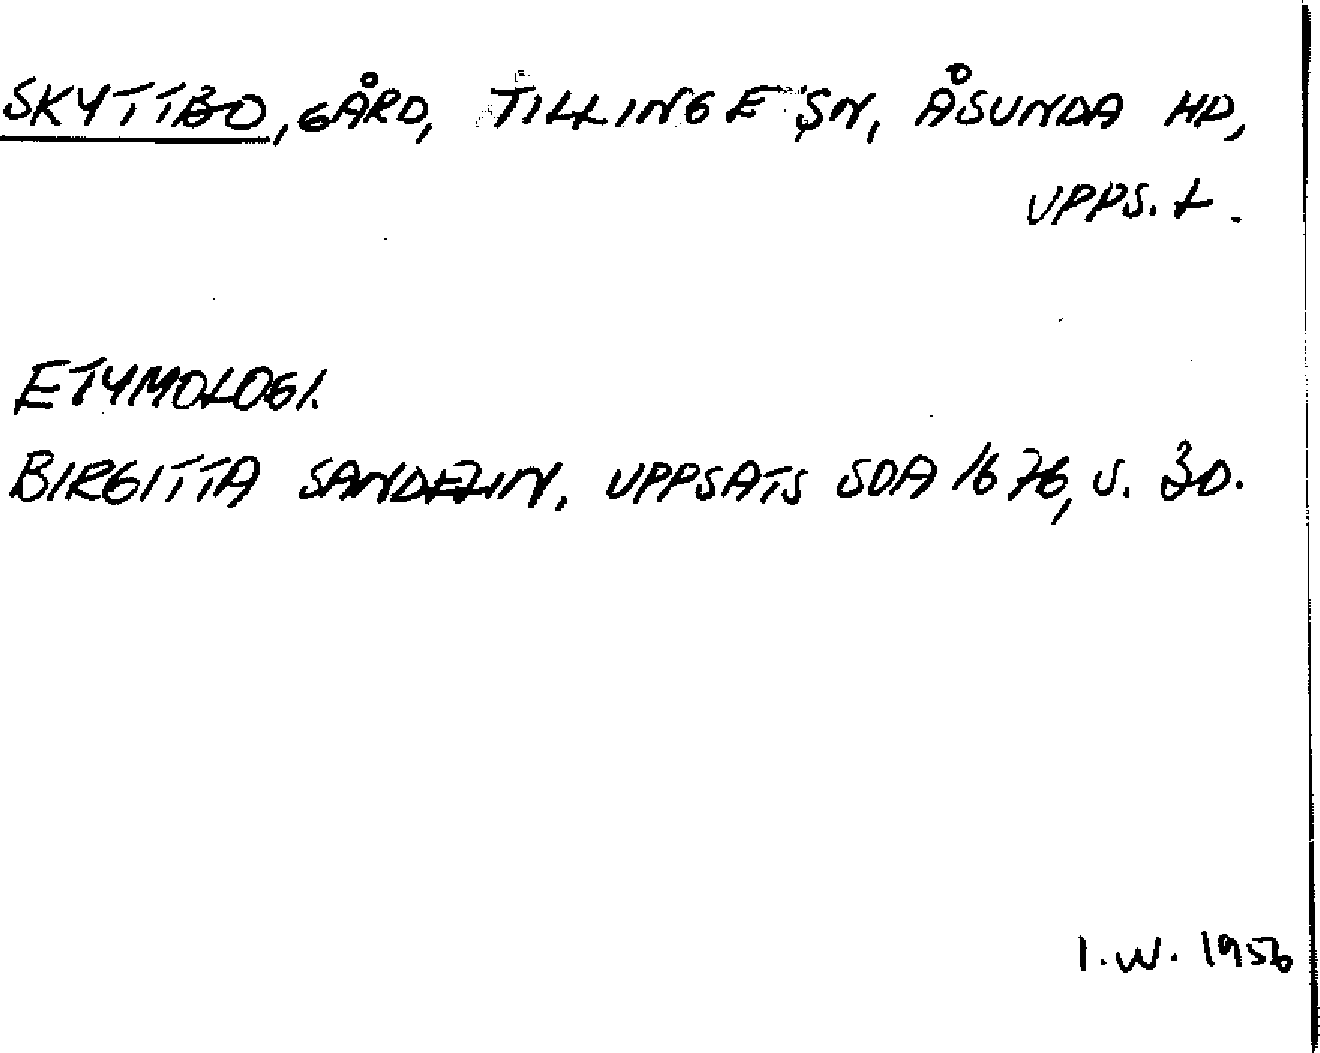 SKYTTBO, GÅRD, TILLINGE SN, ÅSUNDA HD,
UPPS. L.
ETYMOLOGI.
BIRGITTA SANDELIN, UPPSATS SOA 1676, S. 30.
I.W. 1956